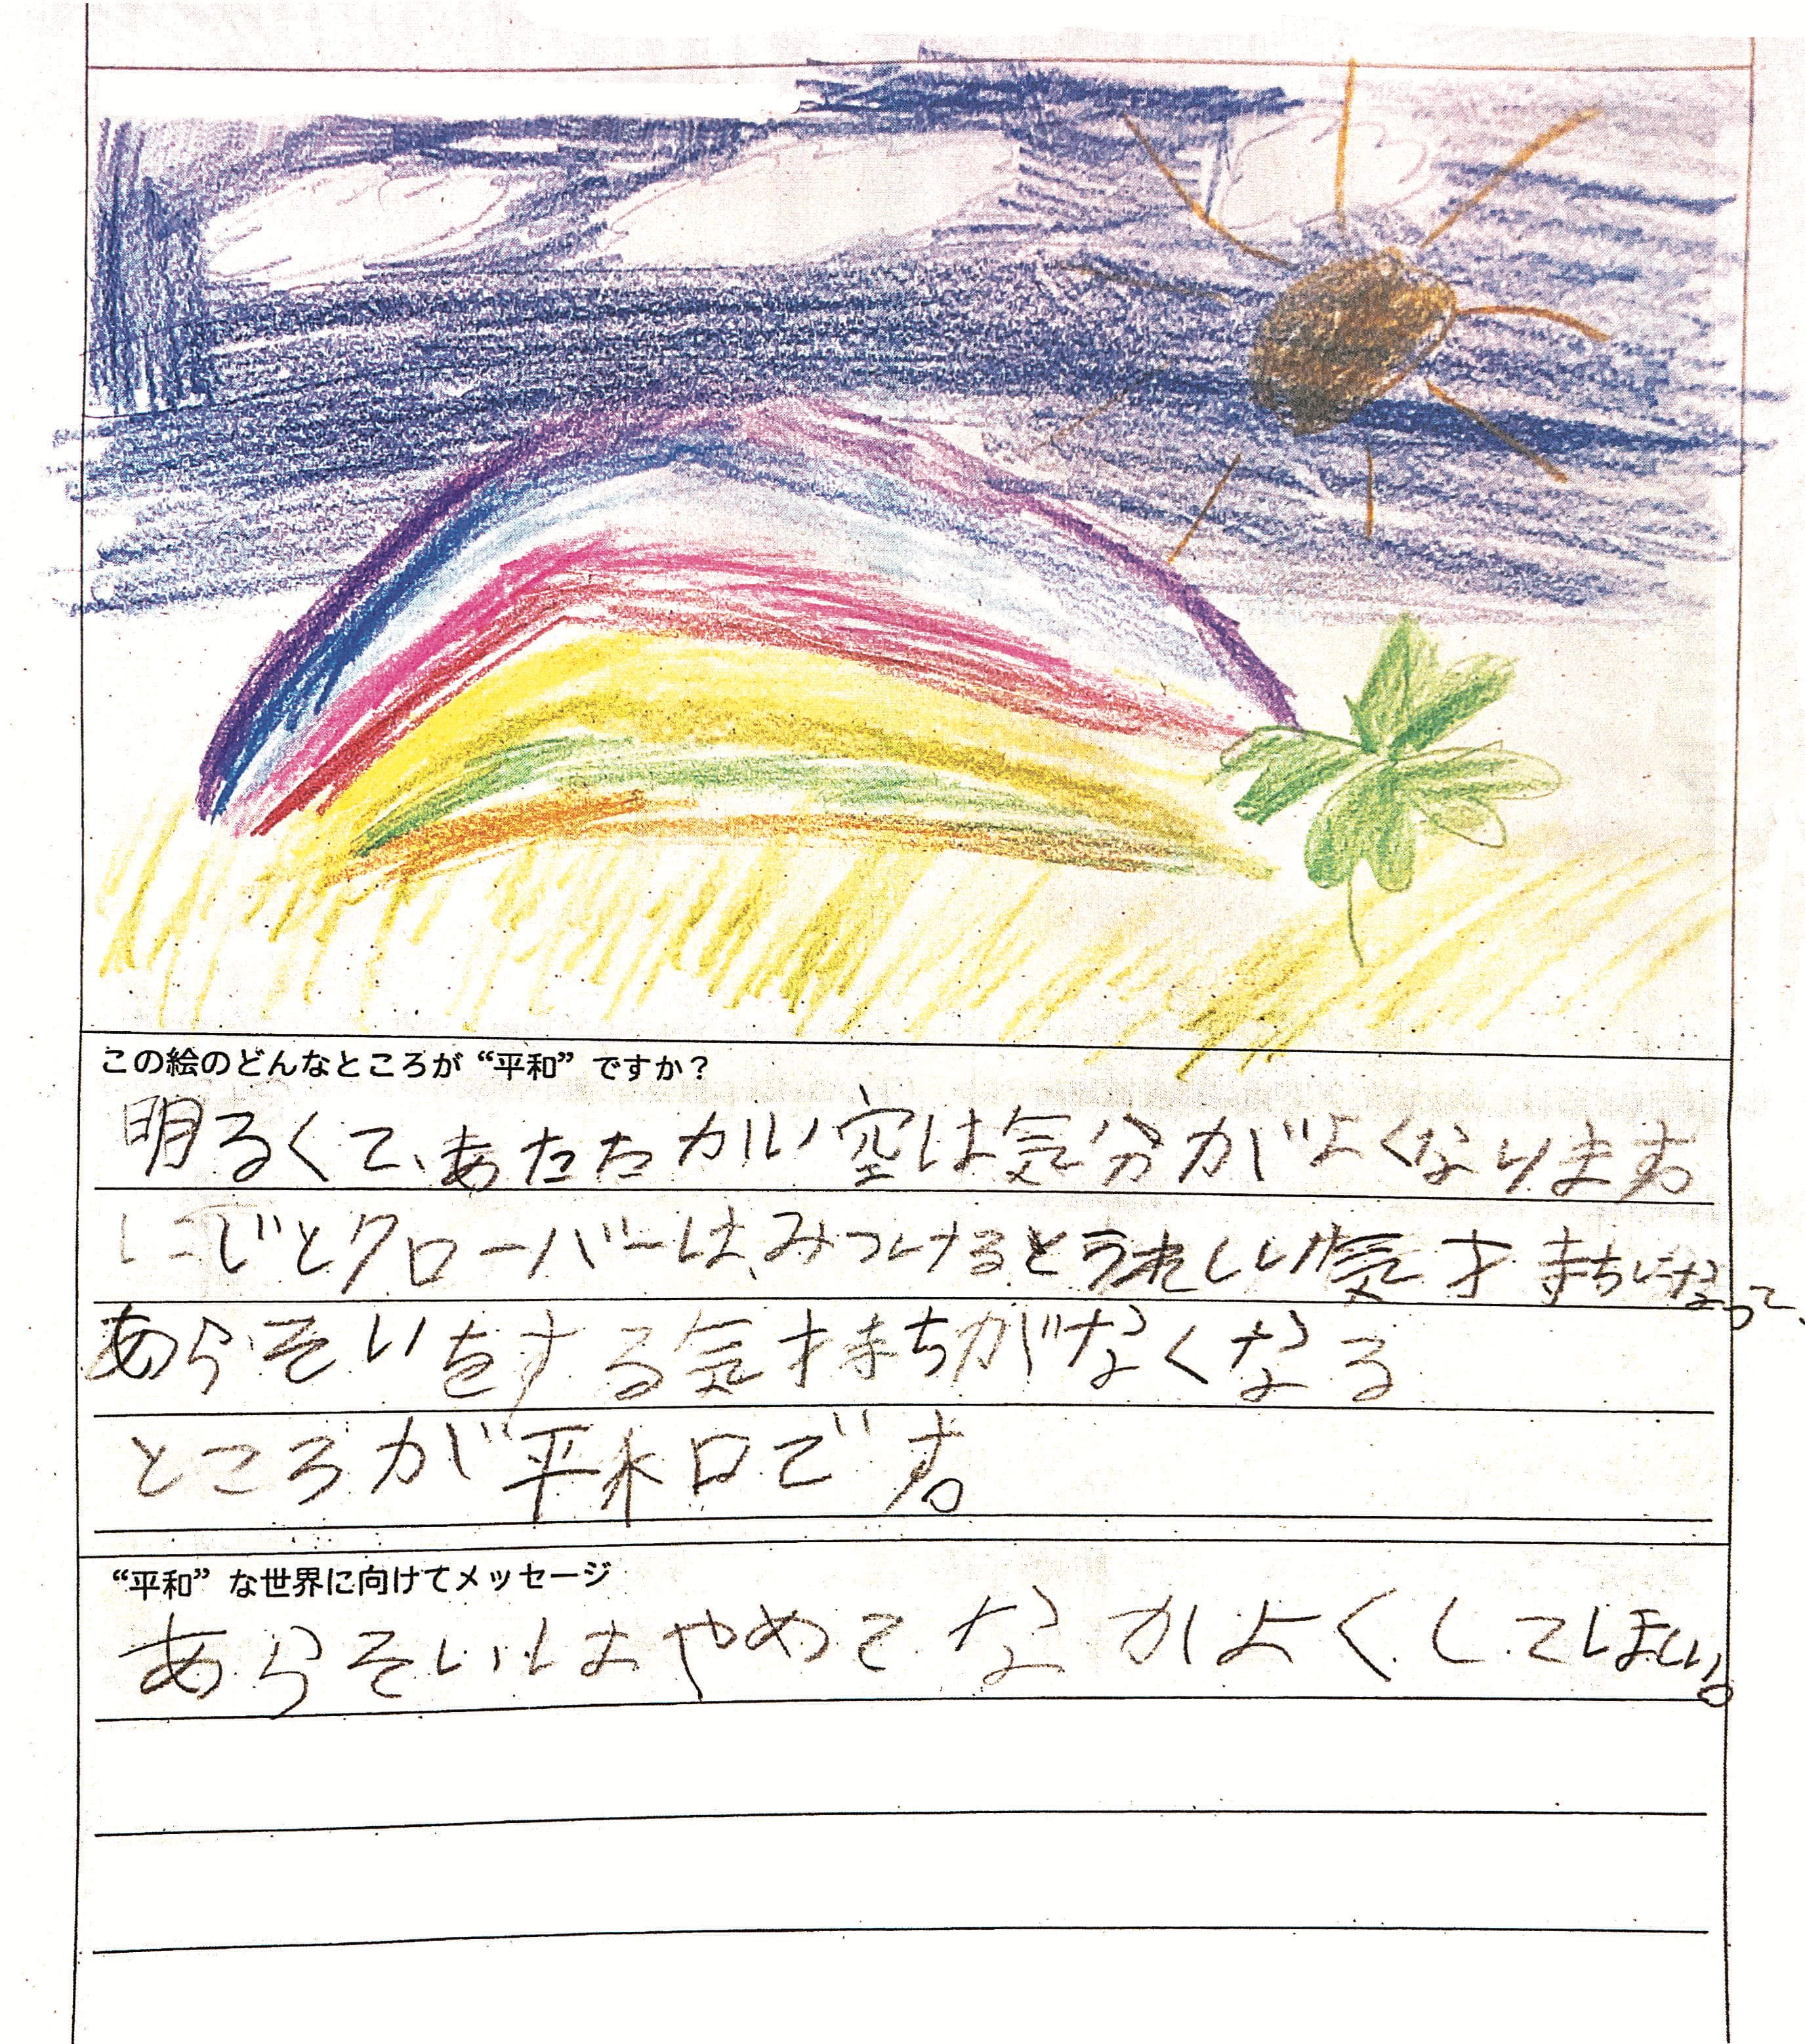 この絵のどんなところが“平和”ですか？
明るくて、あたたかい空は気分がよくなります。
にじとクローバーは、みつけるとうれしい気持ちになって、
あらそいをする気持ちがなくなる
ところが平和です。
“平和”な世界に向けてメッセージ
あらそいはやめてなかよくしてほしい。